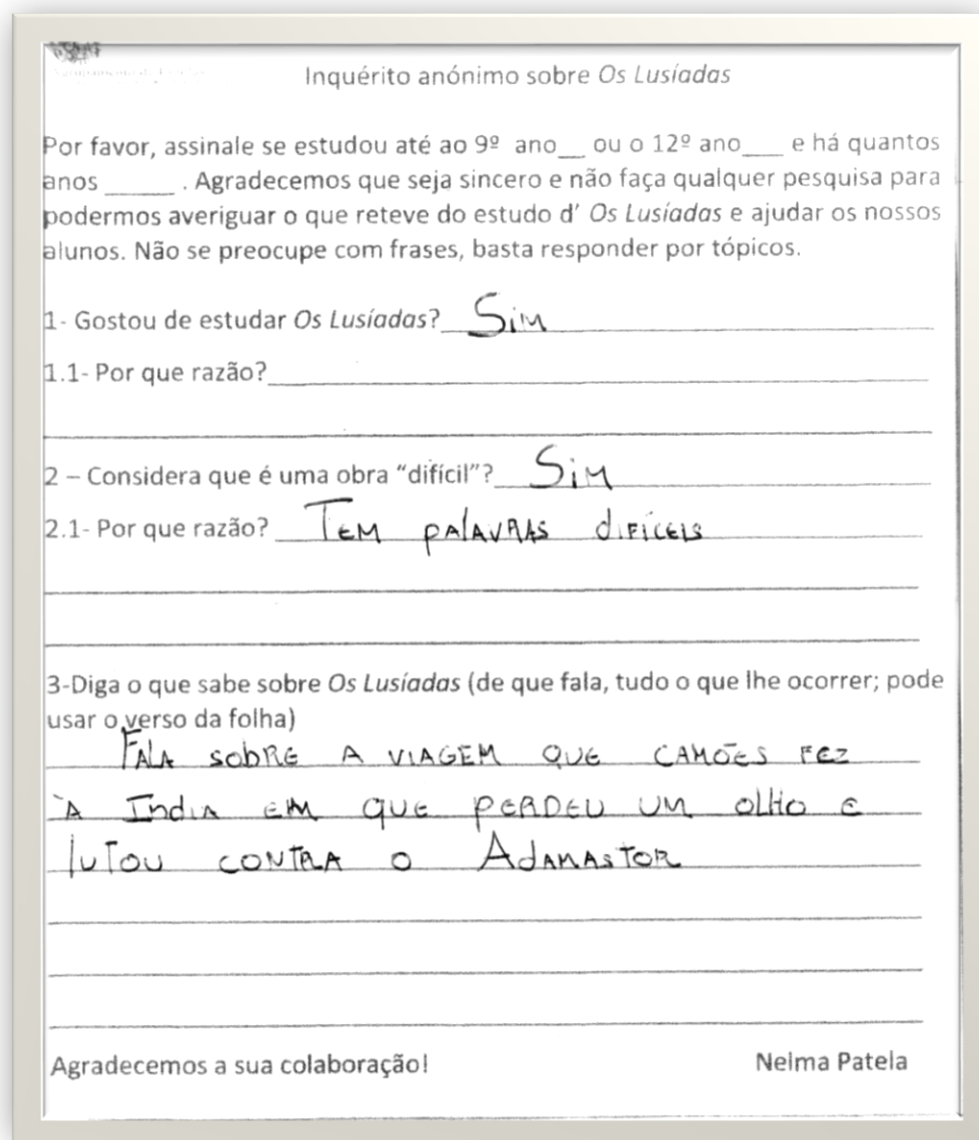 Inquérito anónimo sobre Os Lusíadas
Por favor, assinale se estudou até ao 9º ano__ ou o 12º ano___ e há quantos
anos _____ . Agradecemos que seja sincero e não faça qualquer pesquisa para
podermos averiguar o que reteve do estudo d' Os Lusíadas e ajudar os nossos
alunos. Não se preocupe com frases, basta responder por tópicos.
1- Gostou de estudar Os Lusíadas? Sim
1.1- Por que razão?
2 – Considera que é uma obra “difícil”? Sim
2.1- Por que razão? Tem palavras difíceis
3-Diga o que sabe sobre Os Lusíadas (de que fala, tudo o que lhe ocorrer; pode
usar o verso da folha)
Fala sobre a viagem que Camões fez
à Índia em que perdeu um olho e
lutou contra o Adamastor
Agradecemos a sua colaboração! Nelma Patela